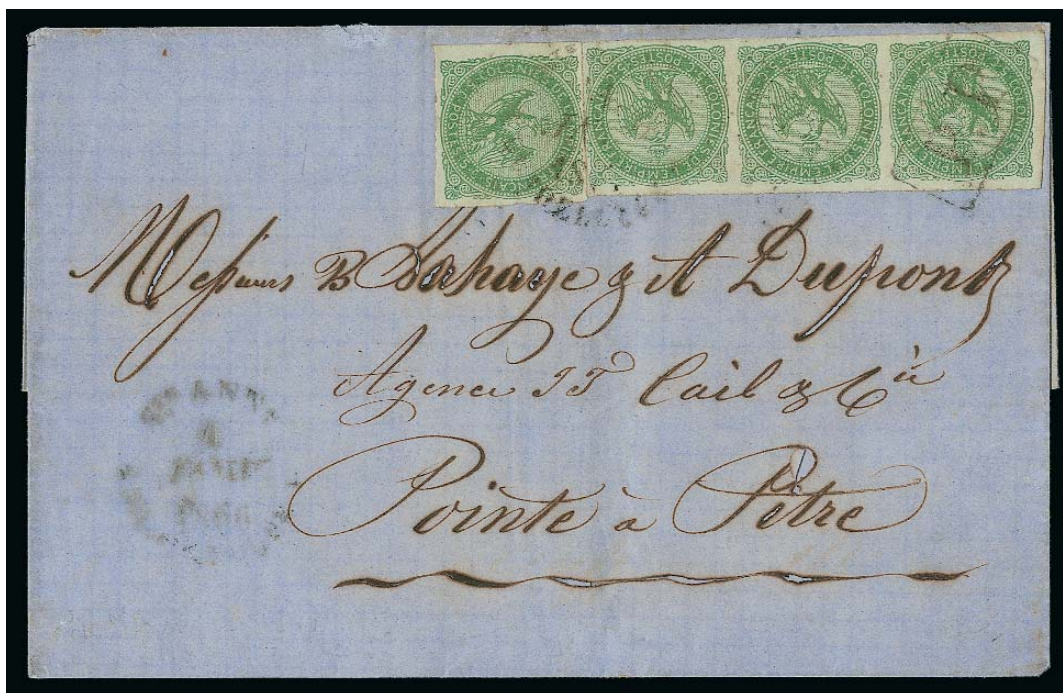 COLONIES DE L'EMPIRE FRANÇAIS POSTES
COLONIES DE L'EMPIRE FRANÇAIS POSTES
COLONIES DE L'EMPIRE FRANÇAIS POSTES
COLONIES DE L'EMPIRE FRANÇAIS POSTES
Messieurs B Lahaye & A Dupont
Agence JF Cail & Cie
Pointe à Pitre